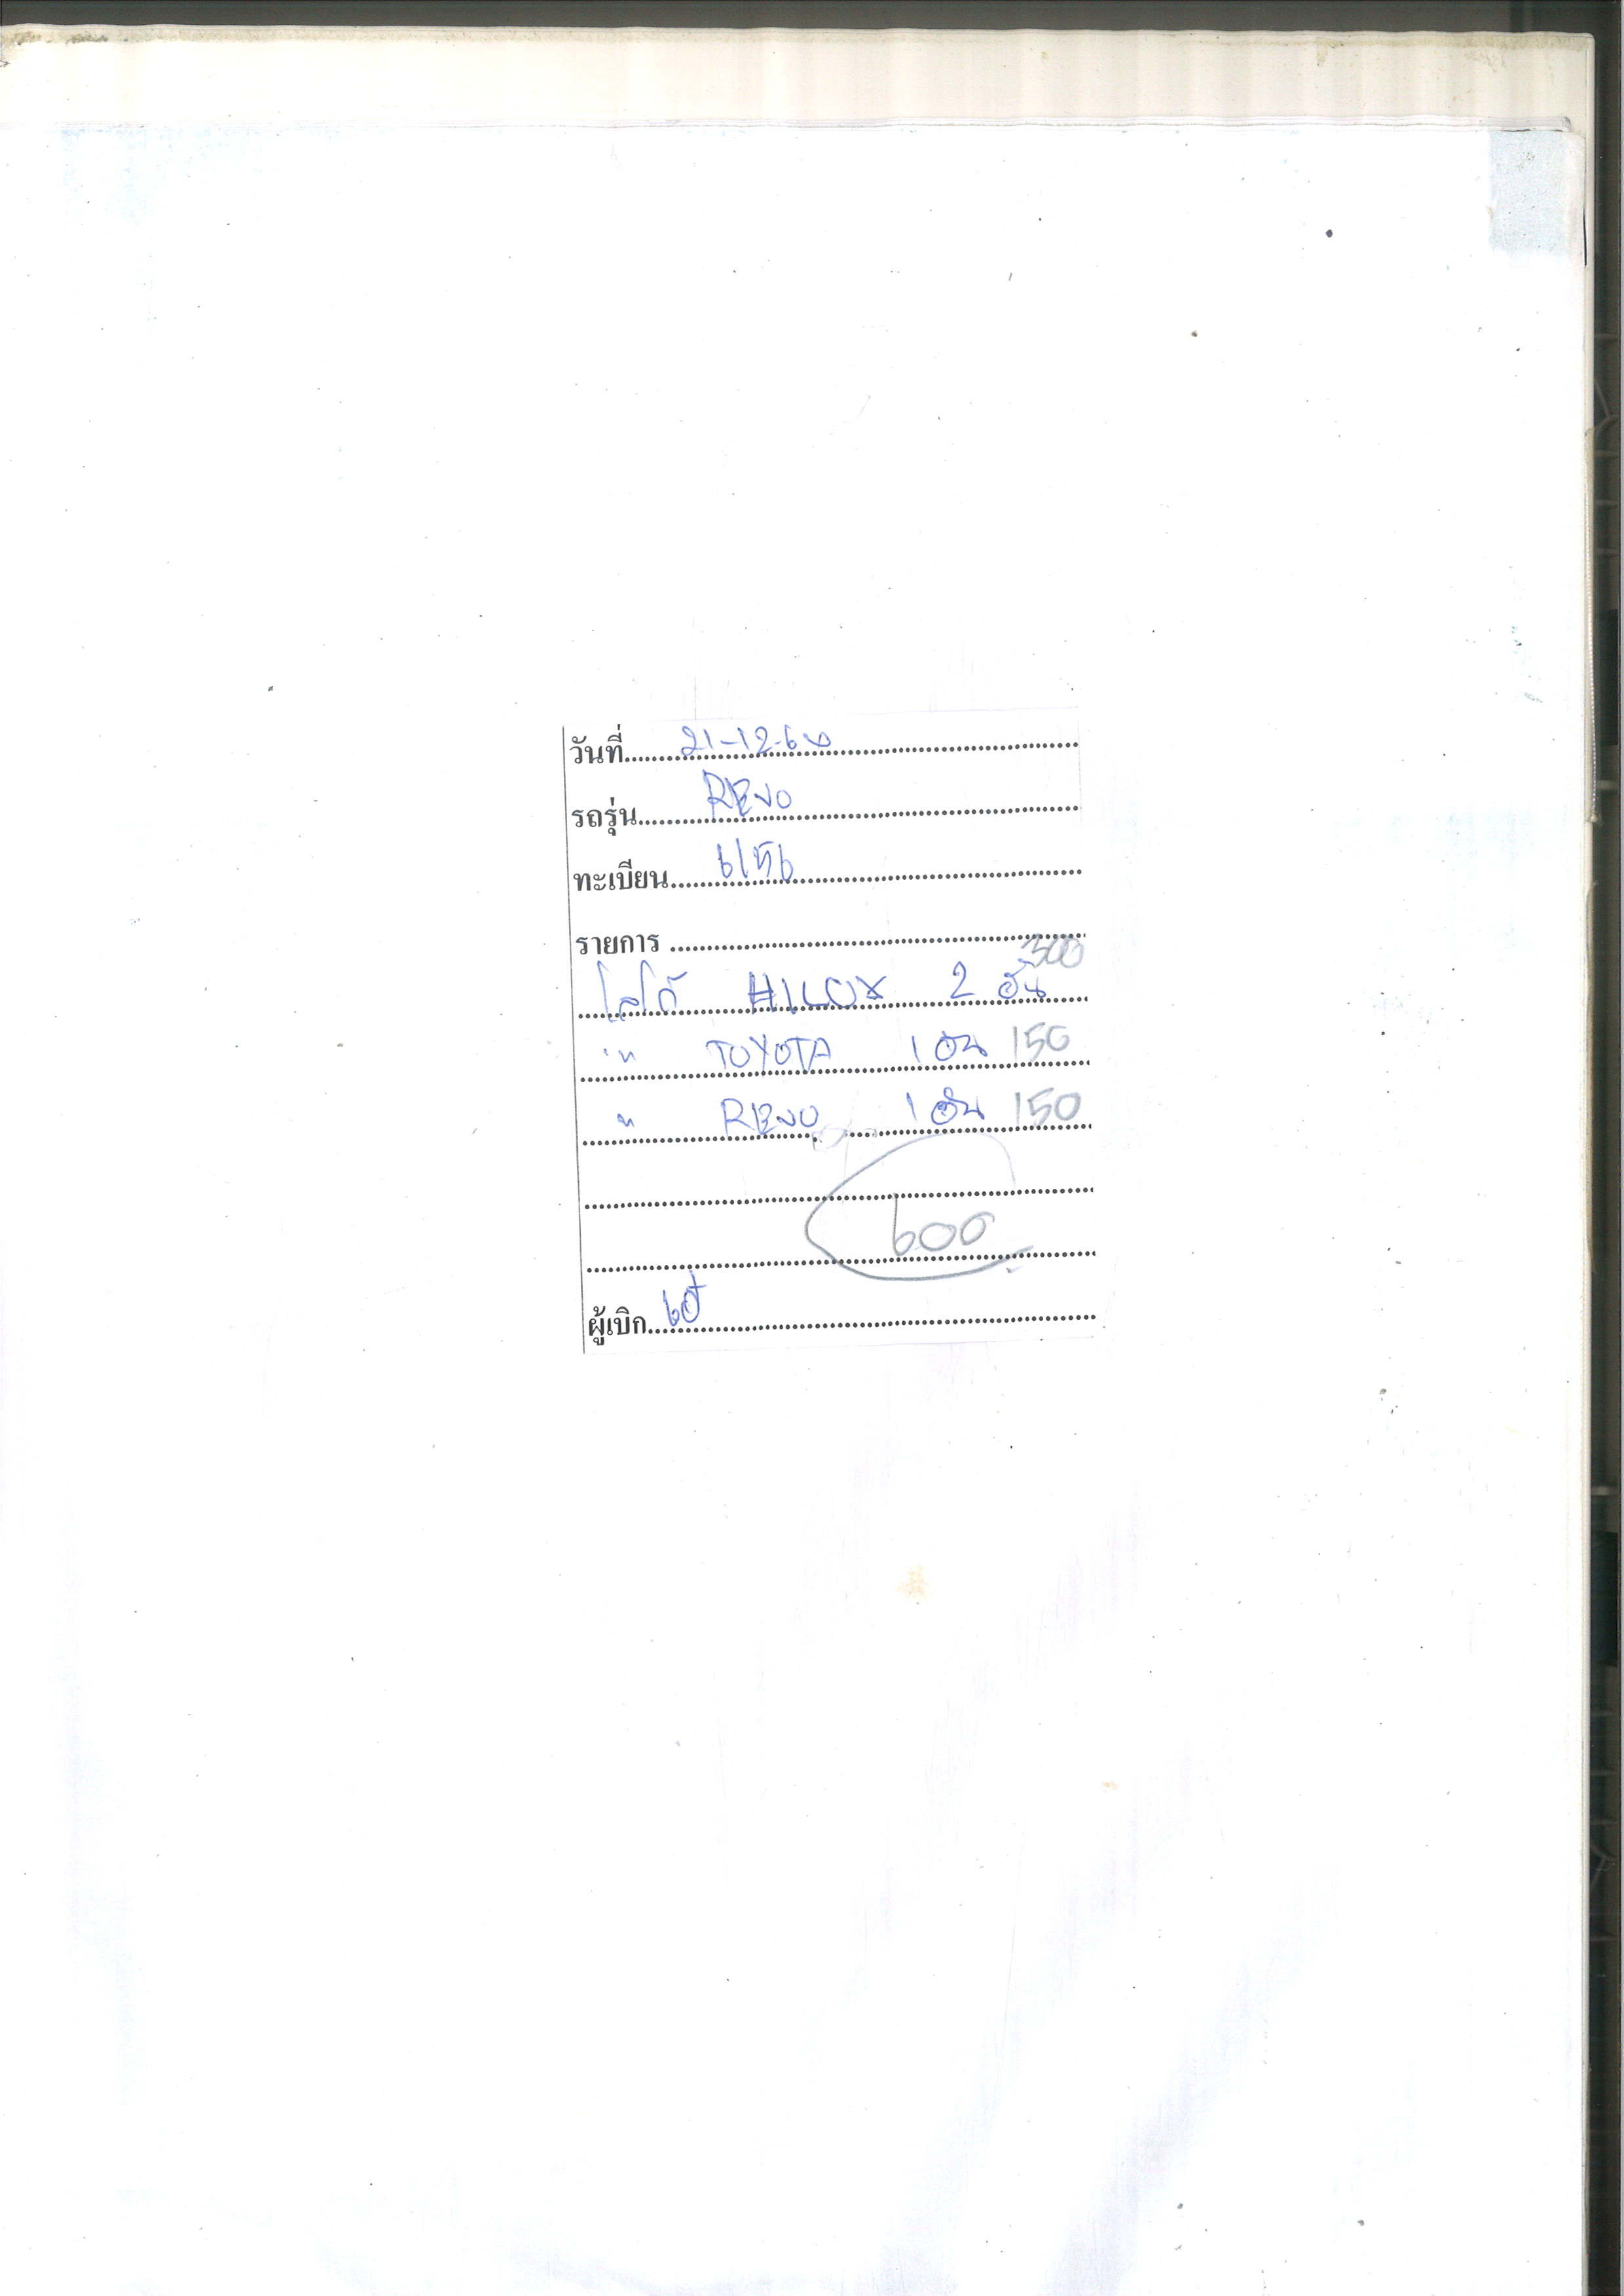 วันที่ 21-12-6
รถรุ่น REVO
ทะเบียน 6156
รายการ
300
โลโก้ HILUX 2 อัน
" TOYOTA 1 อัน 150
" REVO 1 อัน 150
600
ผู้เบิก